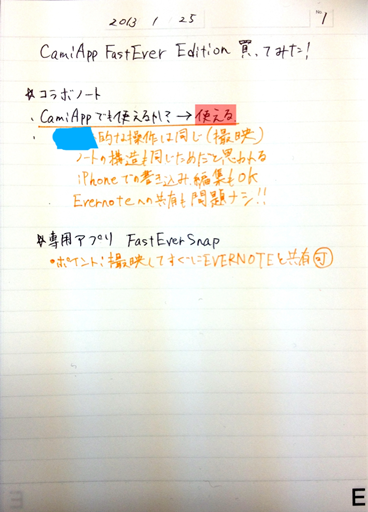 2013 1 25
No. 1
CamiApp FastEver Edition 買ってみた!
☆コラボノート
・CamiAppでも使えるか?→使える
・的な操作は同じ(撮映)
ノートの構造も同じためだと思われる
iPhoneでの書き込み、編集もOK
Evernoteへの共有も問題ナシ!!
☆専用アプリ FastEverSnap
・ポイント:撮映してすぐにEVERNOTEと共有可
E
E